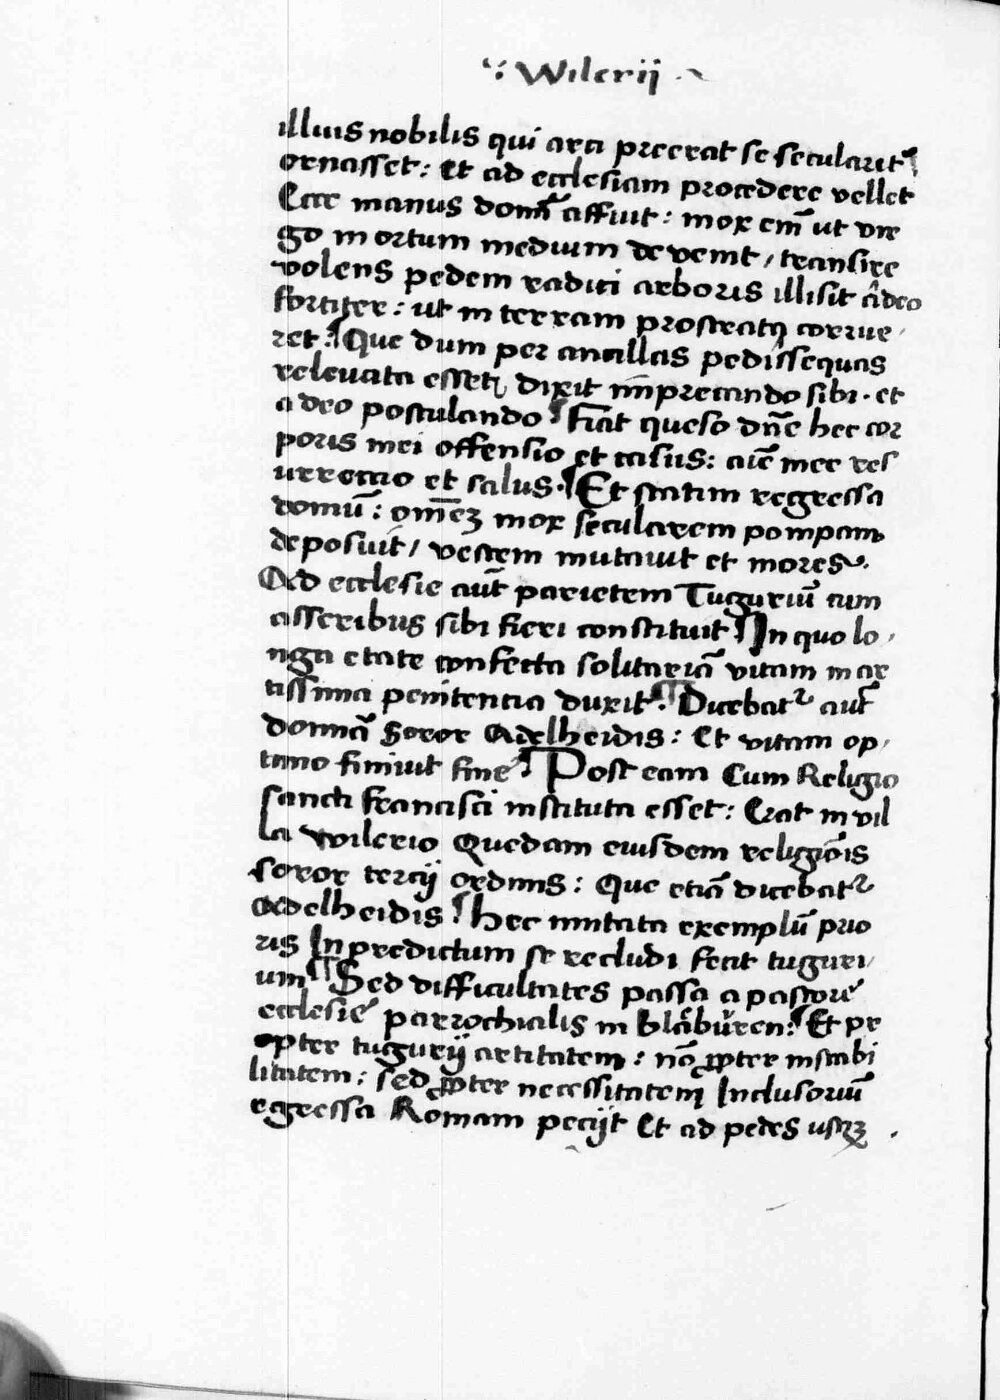 Wilerij
illius nobilis qui arci preerat se secularit͛
ornasset : Et ad ecclesiam procedere vellet
Ecce manus domī affuit : mox em̄ ut vir
go in ortum medium devenit / transire
volens pedem radici arboris illisit adeo
fortiter : ut in terram prostrata corrue
ret : ¶ Que dum per ancillas pedissequas
relevata esset dixit imprecando sibi · et
a deo postulando ¶ Fiat queso dn̄e hec cor
poris mei offensio et casus : aīe mee res
urrectio et salus · ¶ Et statim regressa
domū : om̄eʒ mox secularem pompam
deposuit / vestem mutavit et mores
Ad ecclesie aut̄ parietem Tuguriū cum
asseribus sibi fieri constituit ¶ In quo lo
nga etate confecta solitariā vitam in ar
tissima penitencia duxit · ¶ Dicebat͛ aut̄
domna Soror Adelheidis : Et vitam op
timo finivit fine · ¶ Post eam Cum Religio
sancti francisci instituta esset : Erat in vil
la wilerio Quedam eiusdem religiōis
soror tercij ordinis : Que etiā dicebat͛
Adelheidis ¶ hec imitata exemplū prio
ris In predictum se recludi fecit tuguri
um ¶ Sed difficultates passa a pastore
ecclesie parrochialis in Blåbüren : ¶ Et pr
opter tugurij artitatem : nō ꝓpter instabi
litatem : sed ꝓpter necessitatem Inclusoriū
egressa Romam pecijt Et ad pedes usqʒ